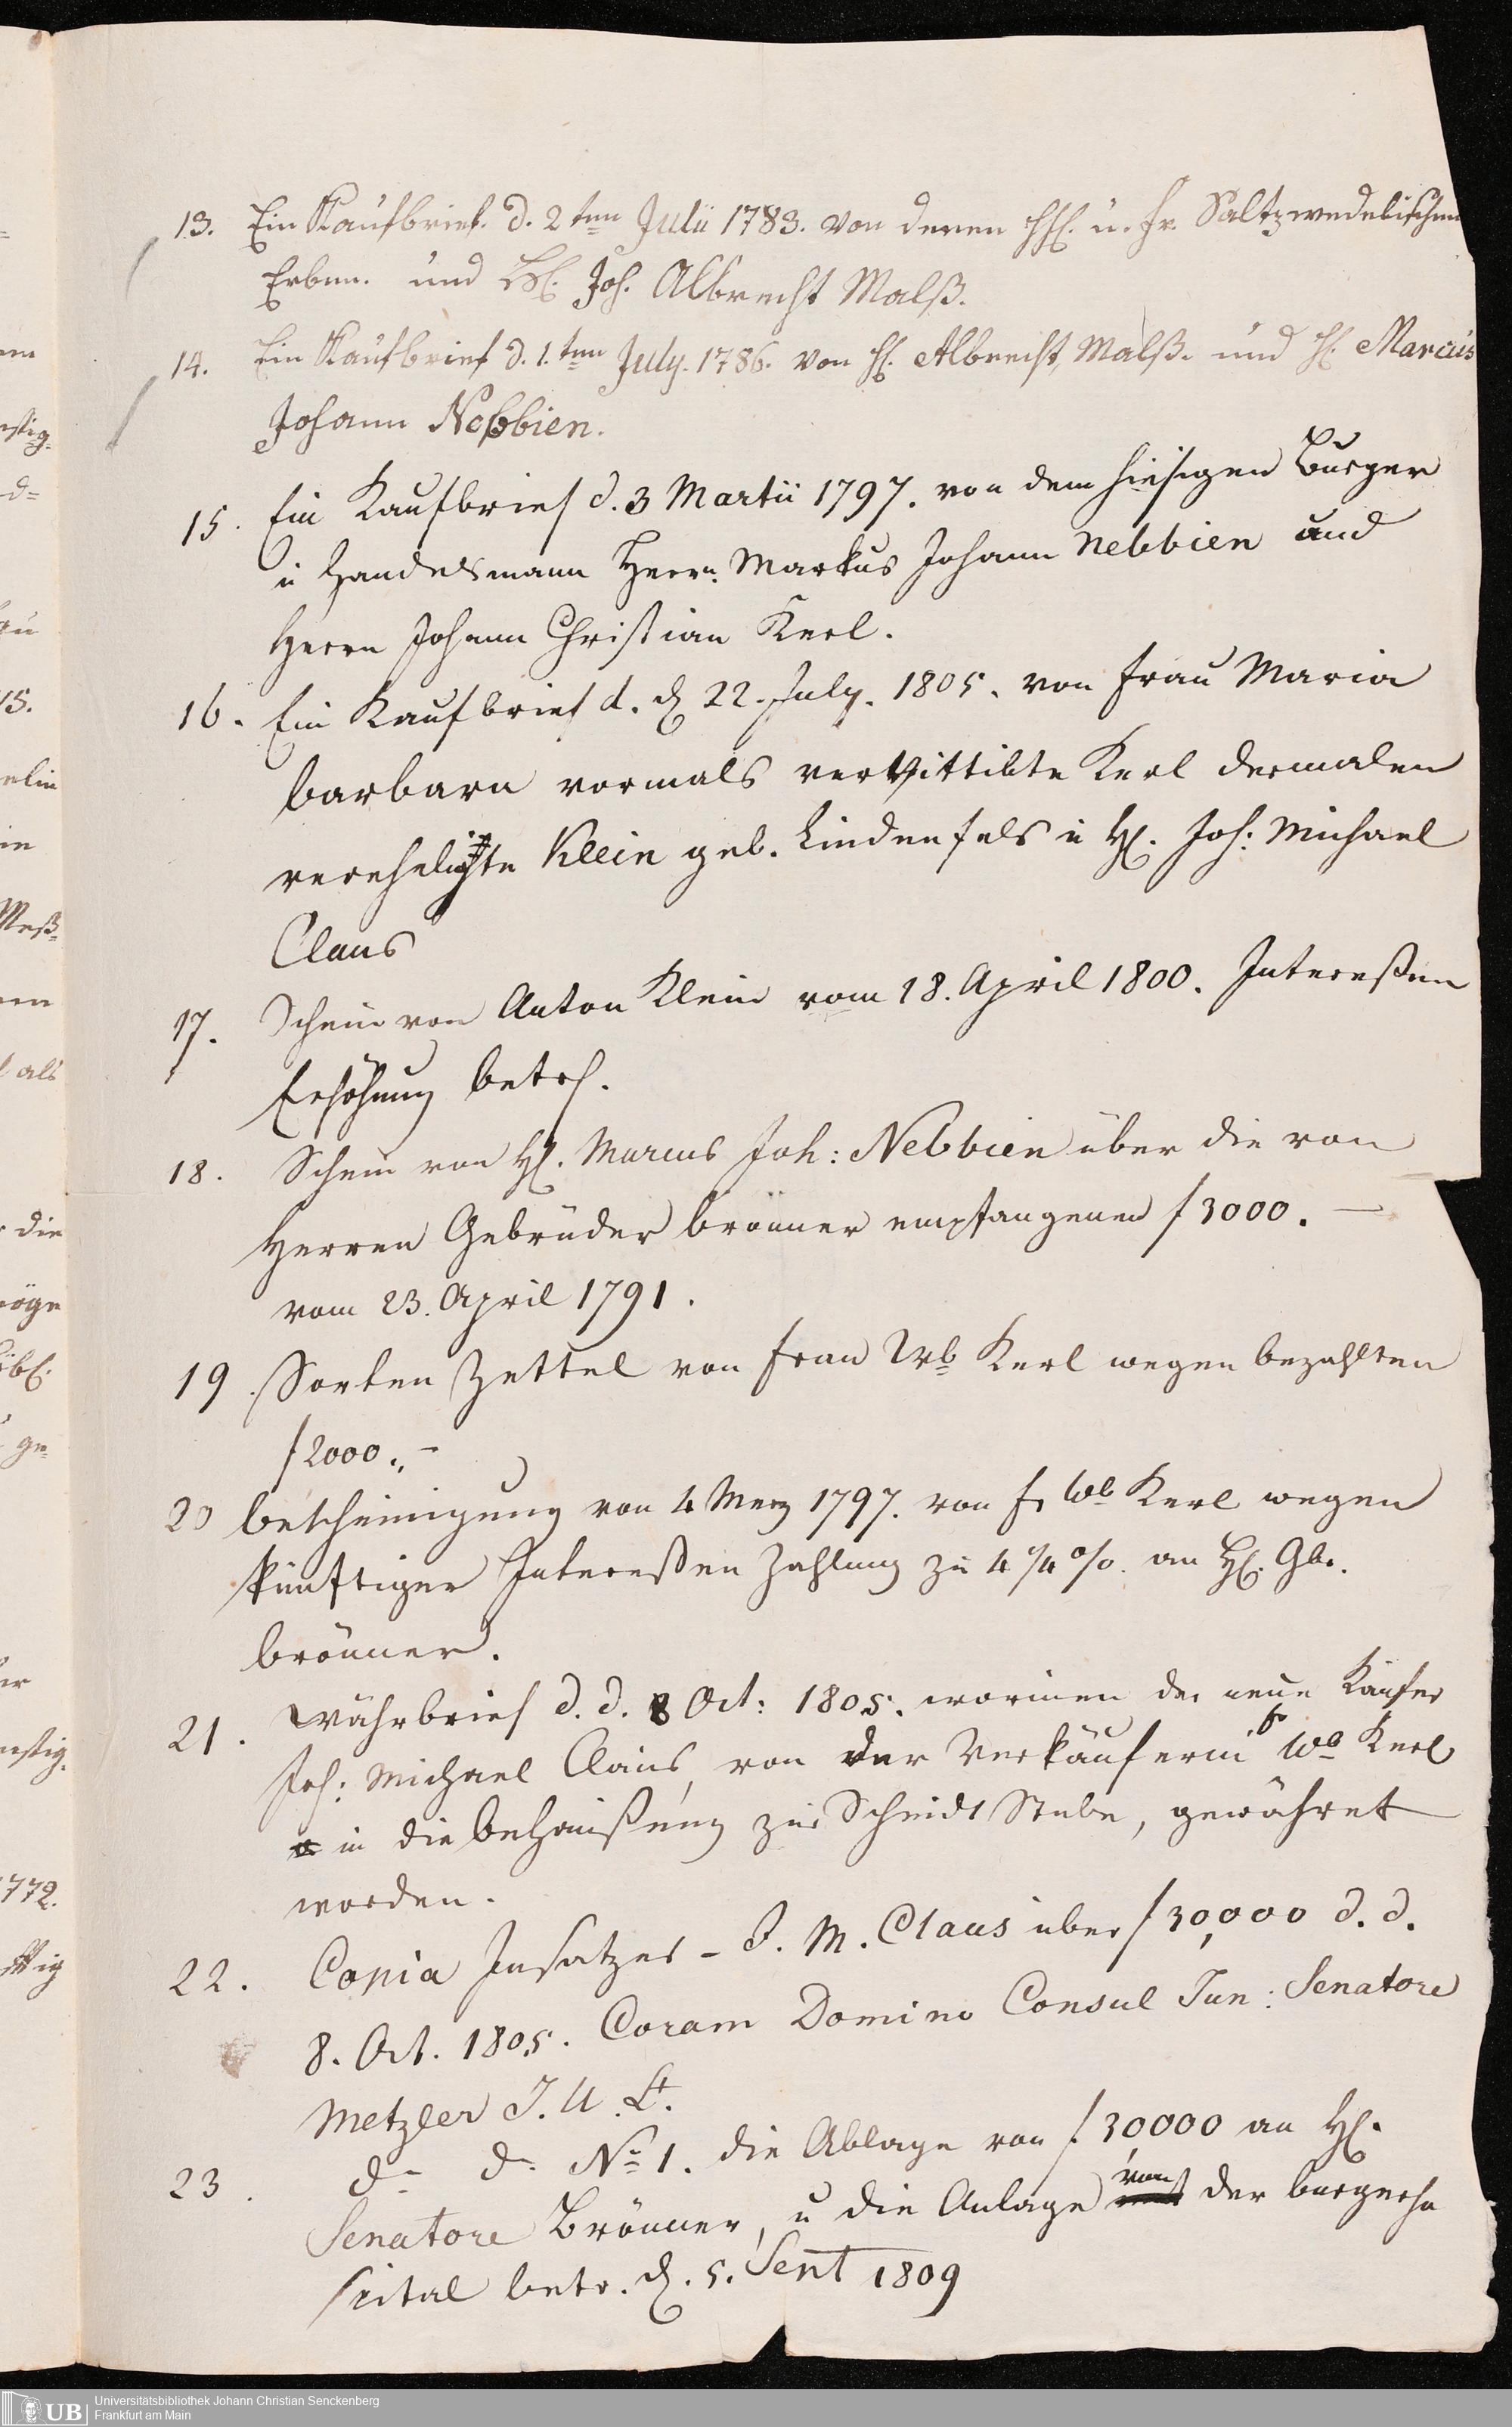 13. Ein Kaufbrief. d. 2ten Julii 1783. von denen HH. u. Fr. Saltzwedelischen
Erben. und H. Joh. Albrecht Malß.
14. Ein Kaufbrief d. 1.ten July. 1786. von H. Albrecht Malß. und H. Marcus
Johann Nebbien.
15. Ein Kaufbrief d. 3 Martii 1797. von dem hiesigen Burger
u Handelsmann Herrn Markus Johann Nebbien und
Herrn Johann Christian Kerl.
16. Ein Kaufbrief d. d 22. July. 1805. von Frau Maria
Barbara vormals verwittibte Kerl dermalen
vereheligte Klein geb. Lindenfels u H. Joh: Michael
Claus
17. Schein von Anton Klein vom 18. April 1800. Intereßen
Erhöhung betrf.
18. Schein von H. Marcus Joh: Nebbien über die von
Herren Gebrüder Brönner empfangenen f 3000. —
vom 23. April 1791.
19. Sorten Zettel von Frau Wb Kerl wegen bezahlten
f 2000. –
20 Bescheinigung von 4 Merz 1797. von Fr Wb Kerl wegen
künftiger Intereßen Zahlung zu 4 1/4 %. an H. Gbr.
Brönner.
21. Währbrief d. d. 8 Oct: 1805. worinnen der neue Käufer
Joh: Michael Claus, von der Verkäuferin Fr Wb Kerl
in die Behaußung zur Scheidt Stube, gewähret
worden.
22. Copia Insatzes – J. M. Claus über f 30,000 d. d.
8. Oct. 1805. Coram Domino Consul Jun: Senatore
Metzler J. U. Lt.
23. do do No 1. die Ablage von f 30,000 an H.
Senatore Brönner, u die Anlage von der burgerho
spital betr. d. 5. Sept 1809
=
em
nstig-
-d=
au
15.
elin
in
Meß-
als
die
möge
ge-
er
nstig.
1772.
UB
Universitätsbibliothek Johann Christian Senckenberg
Frankfurt am Main